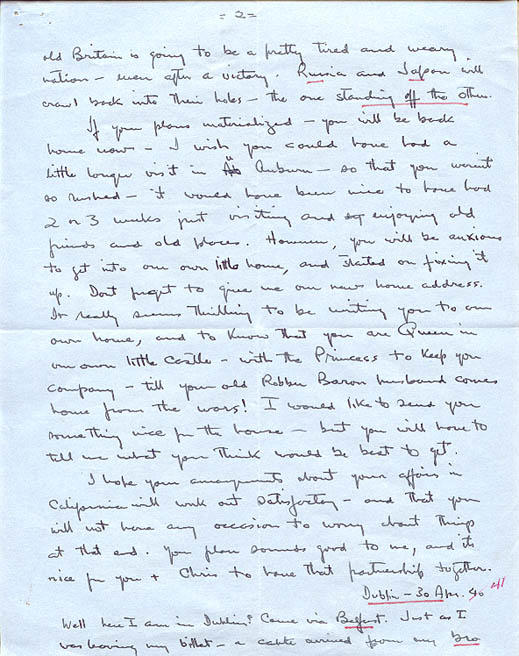 = 2 =
old Britain is going to be a pretty tired and weary
nation - even after a victory. Russia and Japan will
crawl back into their holes - the one standing off the other.
If your plans materialized - you will be back
home now - I wish you could have had a
little longer visit in Auburn - so that you weren't
so rushed - it would have been nice to have had
2 or 3 weeks just visiting and enjoying old
friends and old places. However, you will be anxious
to get into our own little home, and started on fixing it
up. Dont forget to give me our new home address.
It really seems thrilling to be writing you to our
own home, and to know that you are Queen in
our own little castle - with the Princess to keep you
company - till your old Robber Baron husband comes
home from the wars! I would like to send you
something nice for the house - but you will have to
tell me what you think would be best to get.
I hope your arrangements about your affairs in
California will work out satisfactory - and that you
will not have any occasion to worry about things
at that end. Your plan sounds good to me, and its
nice for you + Chris to have that partnership together.
Dublin - 30 Apr. 40 41
Well here I am in Dublin! Came via Belfast. Just as I
was leaving my billet - a cable arrived from my bro